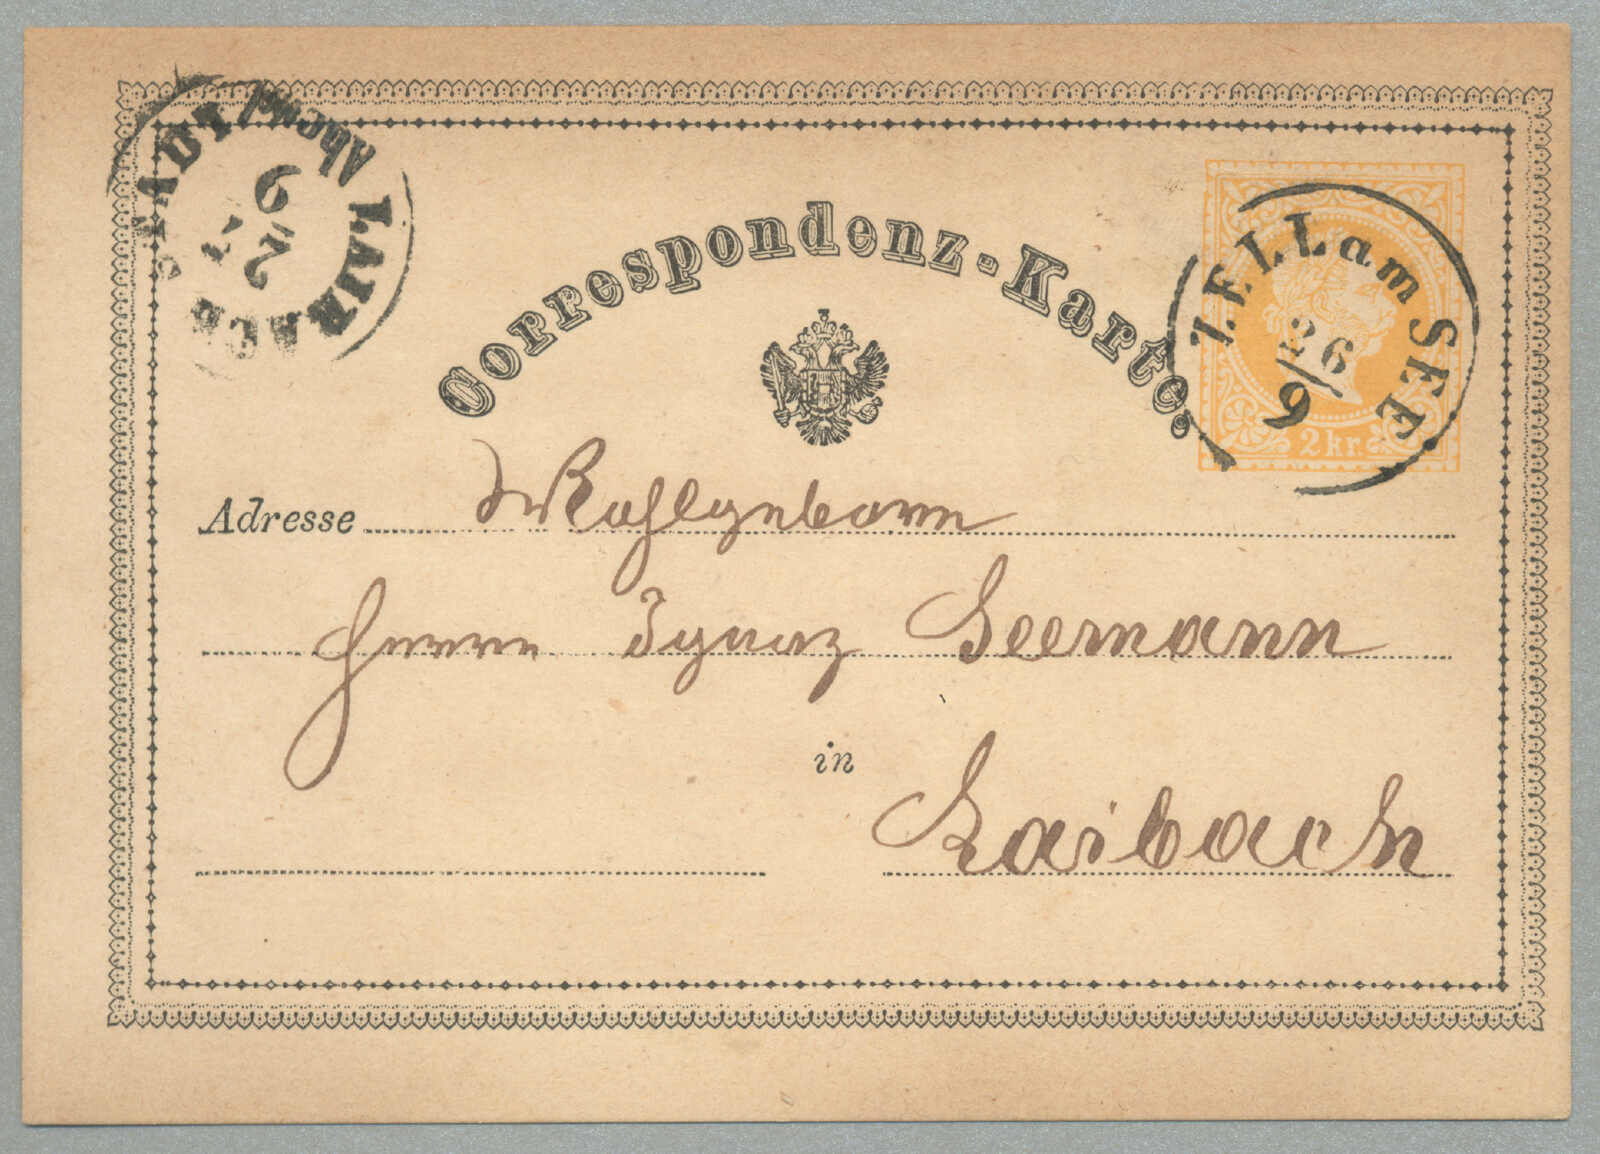 Correspondenz-Karte.
ZELL am SEE
26/9
2 kr.
LAIBACH STADT Abend
27
9
Adresse Wohlgeboren
Herrn Ignaz Seemann
in
Laibach